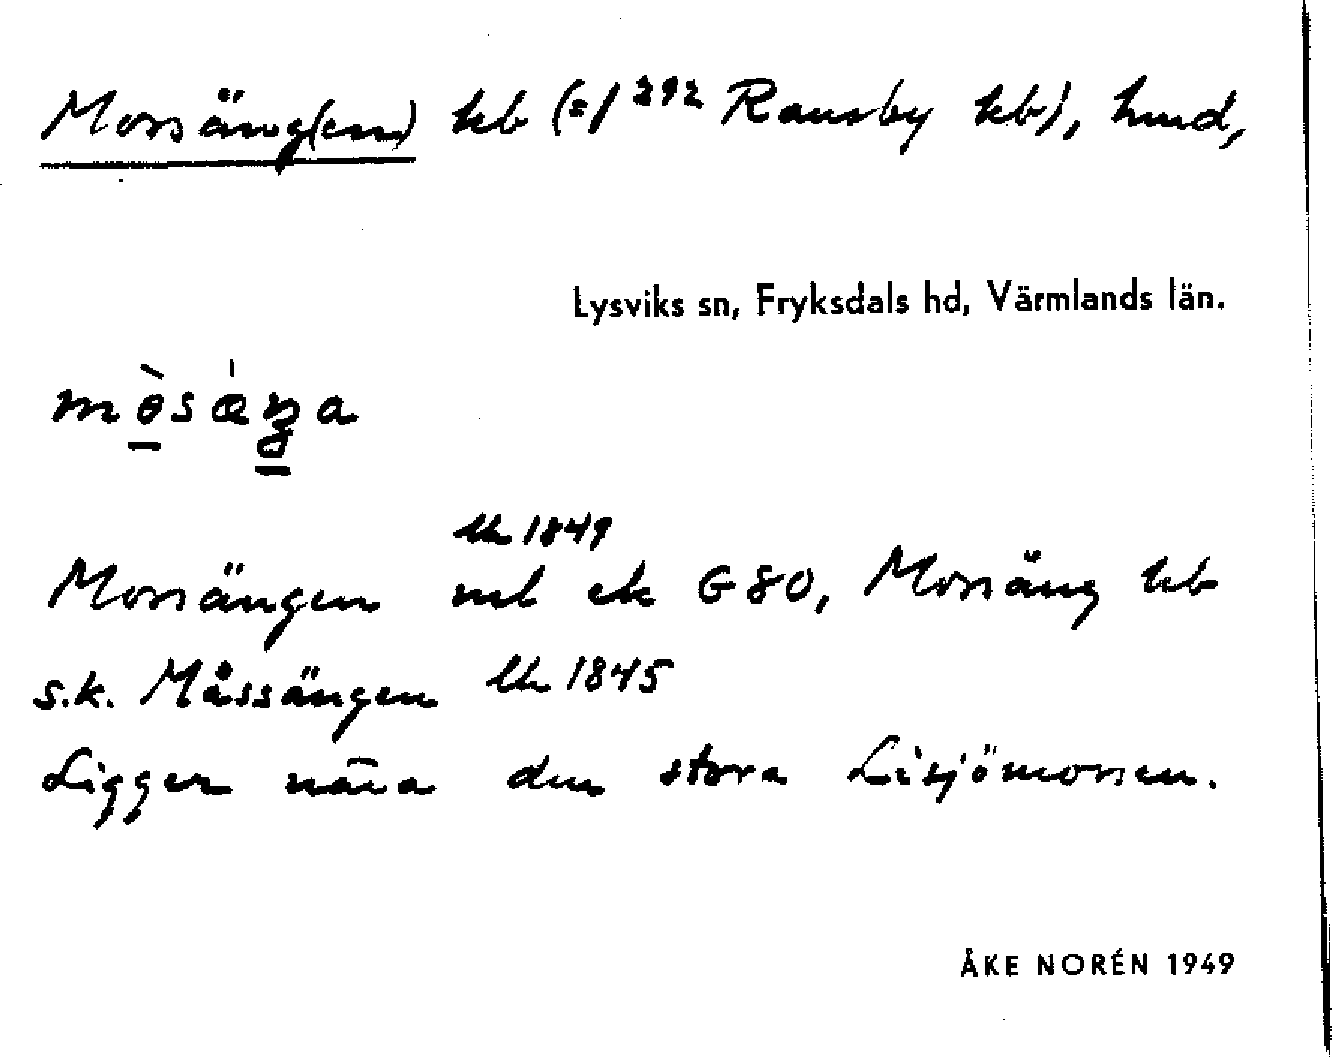 Mossäng(en) hb (=/292 Ransby hb), hmd,
Lysviks sn, Fryksdals hd, Värmlands län.
mòsæŋa
lh 1849
Mossängen ek G80, Mossäng hb
s.k. Måssängen lh 1845
Ligger nära den stora Lisjömossen.
ÅKE NORÉN 1949